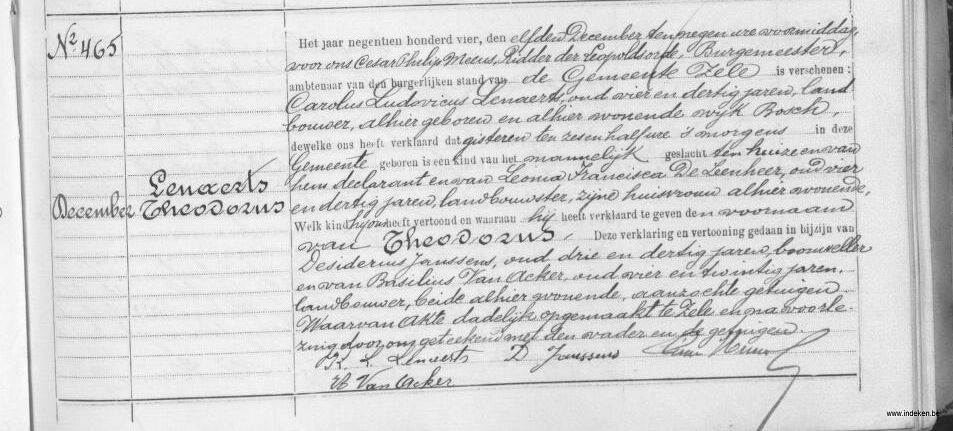 N° 465
December
Lenaerts
Theodorus
Het jaar negentien honderd vier, den elfden December ten negen ure voormiddag,
voor ons Cesar Philip Meeus, Ridder der Leopoldsorde, Burgemeester,
ambtenaar van den burgerlijken stand van de Gemeente Zele is verschenen :
Carolus Ludovicus Lenaerts, oud vier en dertig jaren, land
bouwer, alhier geboren en alhier wonende wijk Bosch,
dewelke ons heeft verklaard dat gisteren ten zes en half ure 's morgens in deze
Gemeente geboren is een kind van het mannelijk geslacht ten huize en van
hem declarant en van Leonia Francisca De Leenheer, oud vier
en dertig jaren, landbouwster, zijne huisvrouw alhier wonende,
Welk kind hij ons heeft vertoond en waaraan hij heeft verklaard te geven den voornaam
van Theodorus. Deze verklaring en vertooning gedaan in bijzijn van
Desiderius Janssens, oud drie en dertig jaren, boomveller
en van Basilius Van Acker, oud vier en twintig jaren,
landbouwer, beide alhier wonende, aanzochte getuigen.
Waarvan Akte dadelijk opgemaakt te Zele en na voorle-
zing door ons geteekend met den vader en de getuigen.
K. L. Lenaerts D Janssens
Van Acker
www.indeken.be